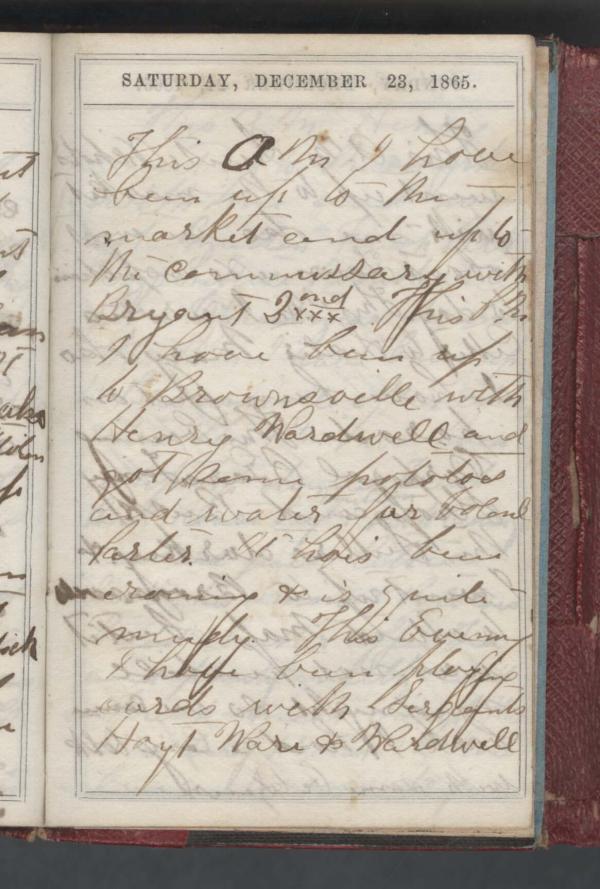 SATURDAY, DECEMBER 23, 1865.
This A M I have
been up to the
market and up to
the commissary with
Bryant 2nd xxx This P. M.
I have been up
to Brownsville with
Henry Wardwell and
got some potatoes
and water for
It has been
raining & is quite
muddy. This Evening
I have been playing
cards with Sergeants
Hoyt Ware & Wardwell